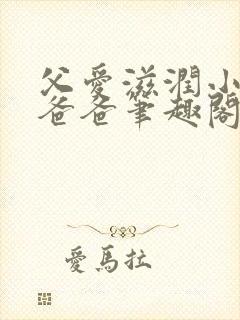 父愛滋潤小
爸爸筆趣閣
愛馬拉